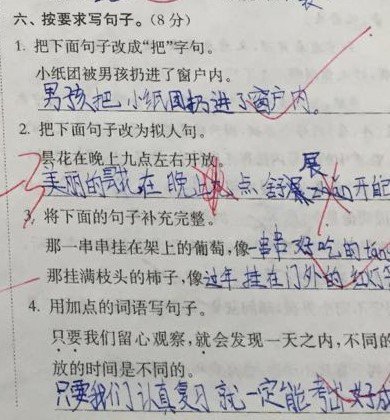 六、按要求写句子。(8分)
1. 把下面句子改成“把”字句。
小纸团被男孩扔进了窗户内。
男孩把小纸团扔进了窗户内。
2. 把下面句子改为拟人句。
昙花在晚上九点左右开放。
展
美丽的昙花在晚上九点舒 开的
3. 将下面的句子补充完整。
那一串串挂在架上的葡萄,像一串串好吃的
那挂满枝头的柿子,像过年挂在门外的红灯
4. 用加点的词语写句子。
只要我们留心观察,就会发现一天之内,不同的
放的时间是不同的。
只要我们认真复习就一定能考出好